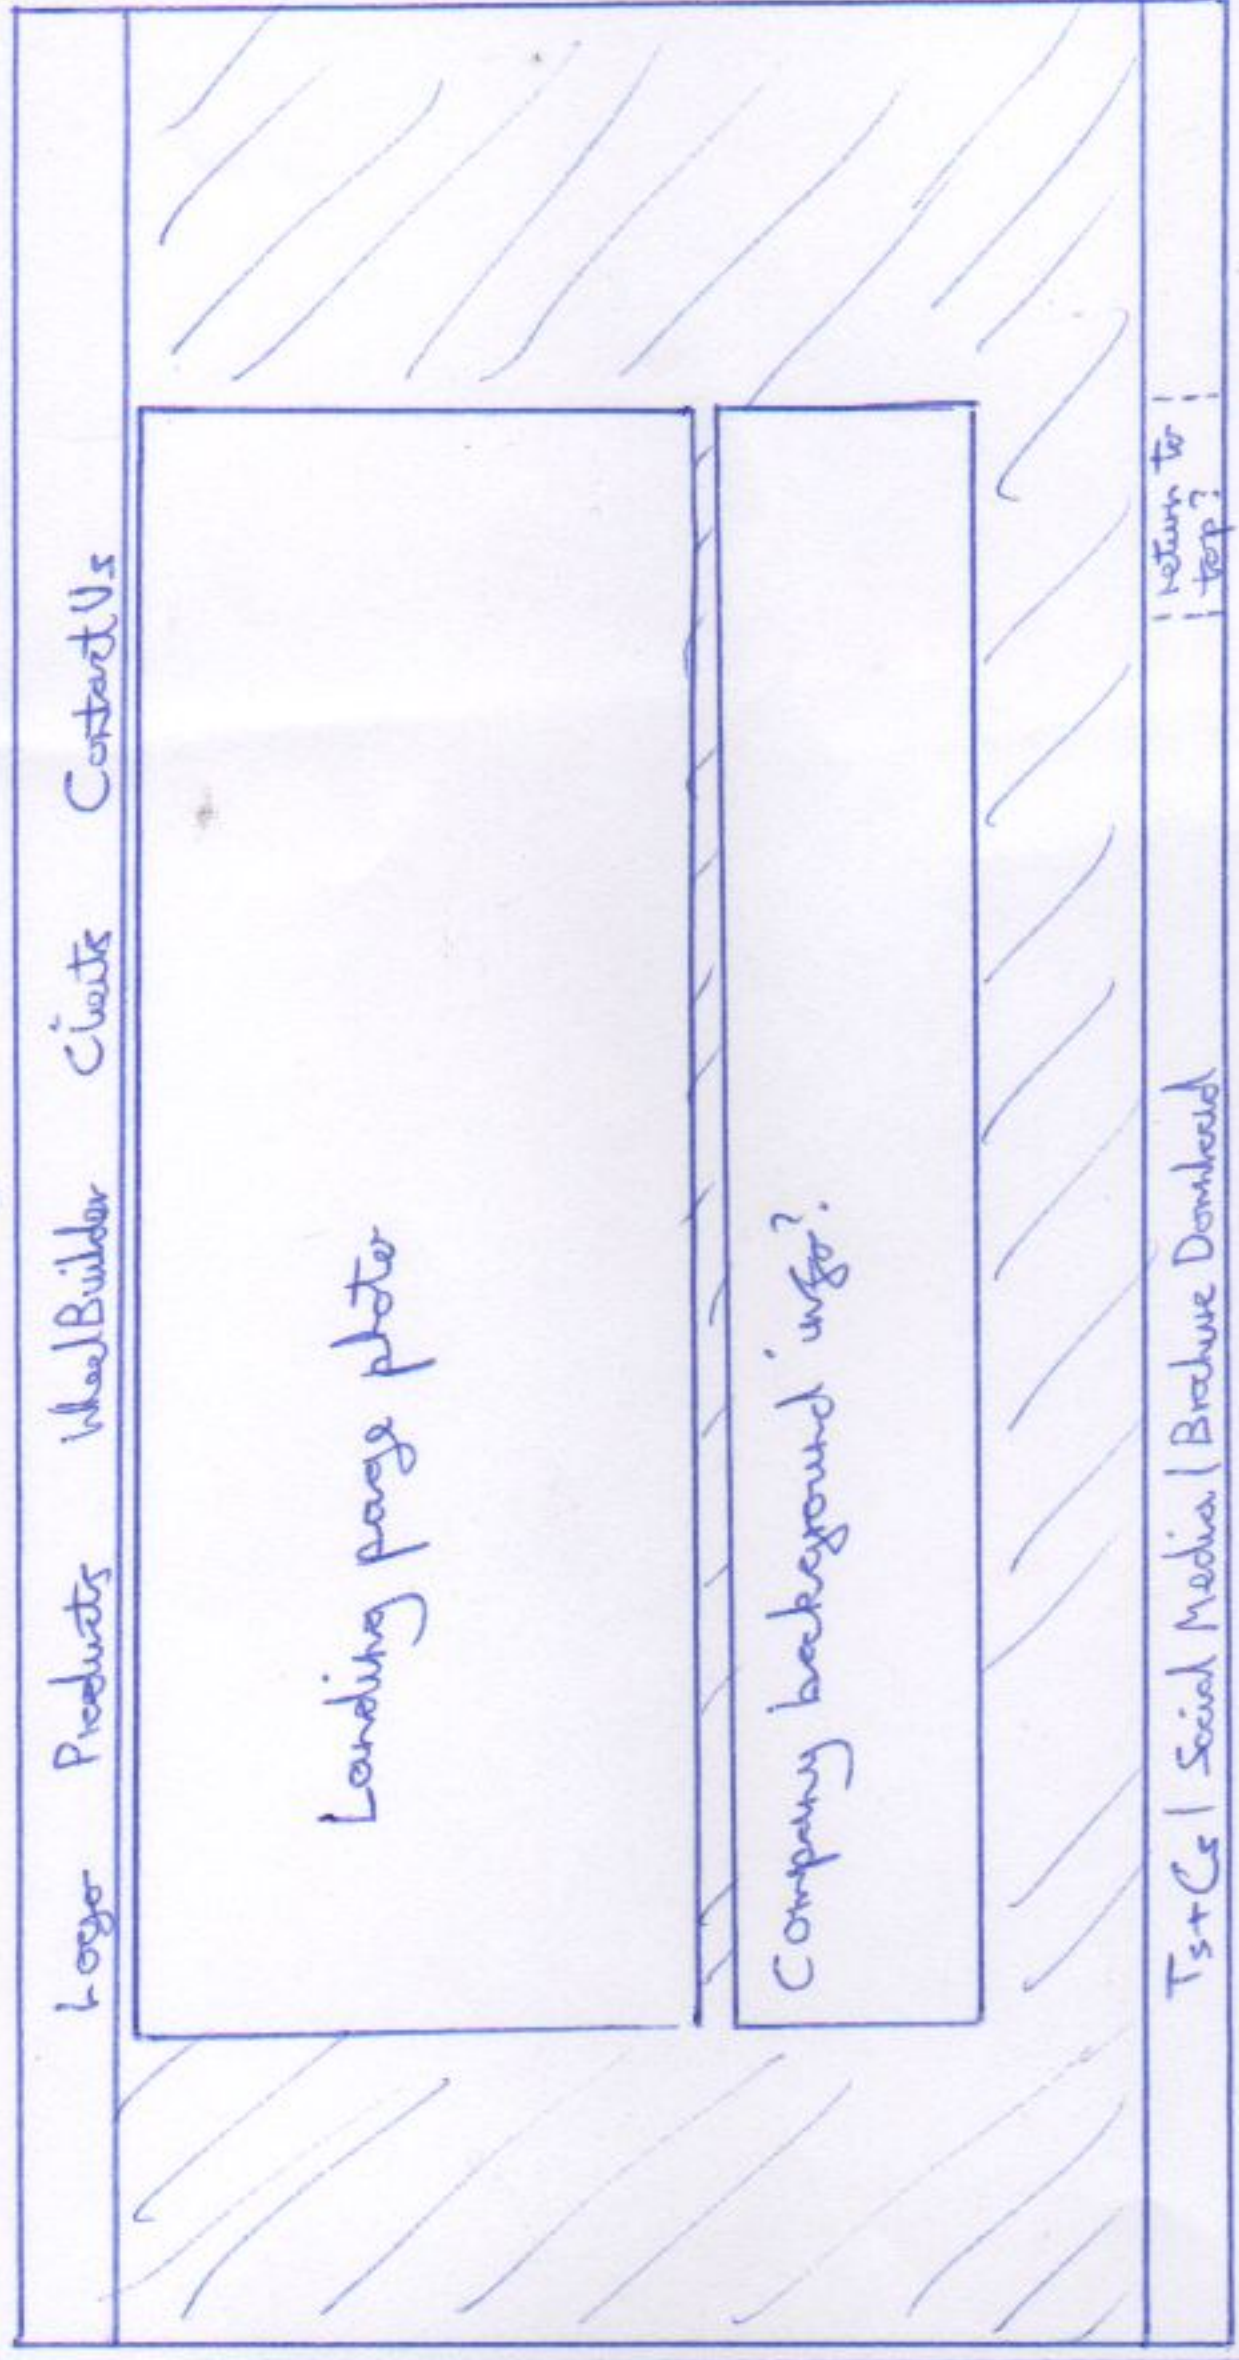 Logo Products WheelBuilder Clients Contact Us
Landing page photo
Company background info?
Ts+Cs | Social Media | Brochure Download
return to
top?